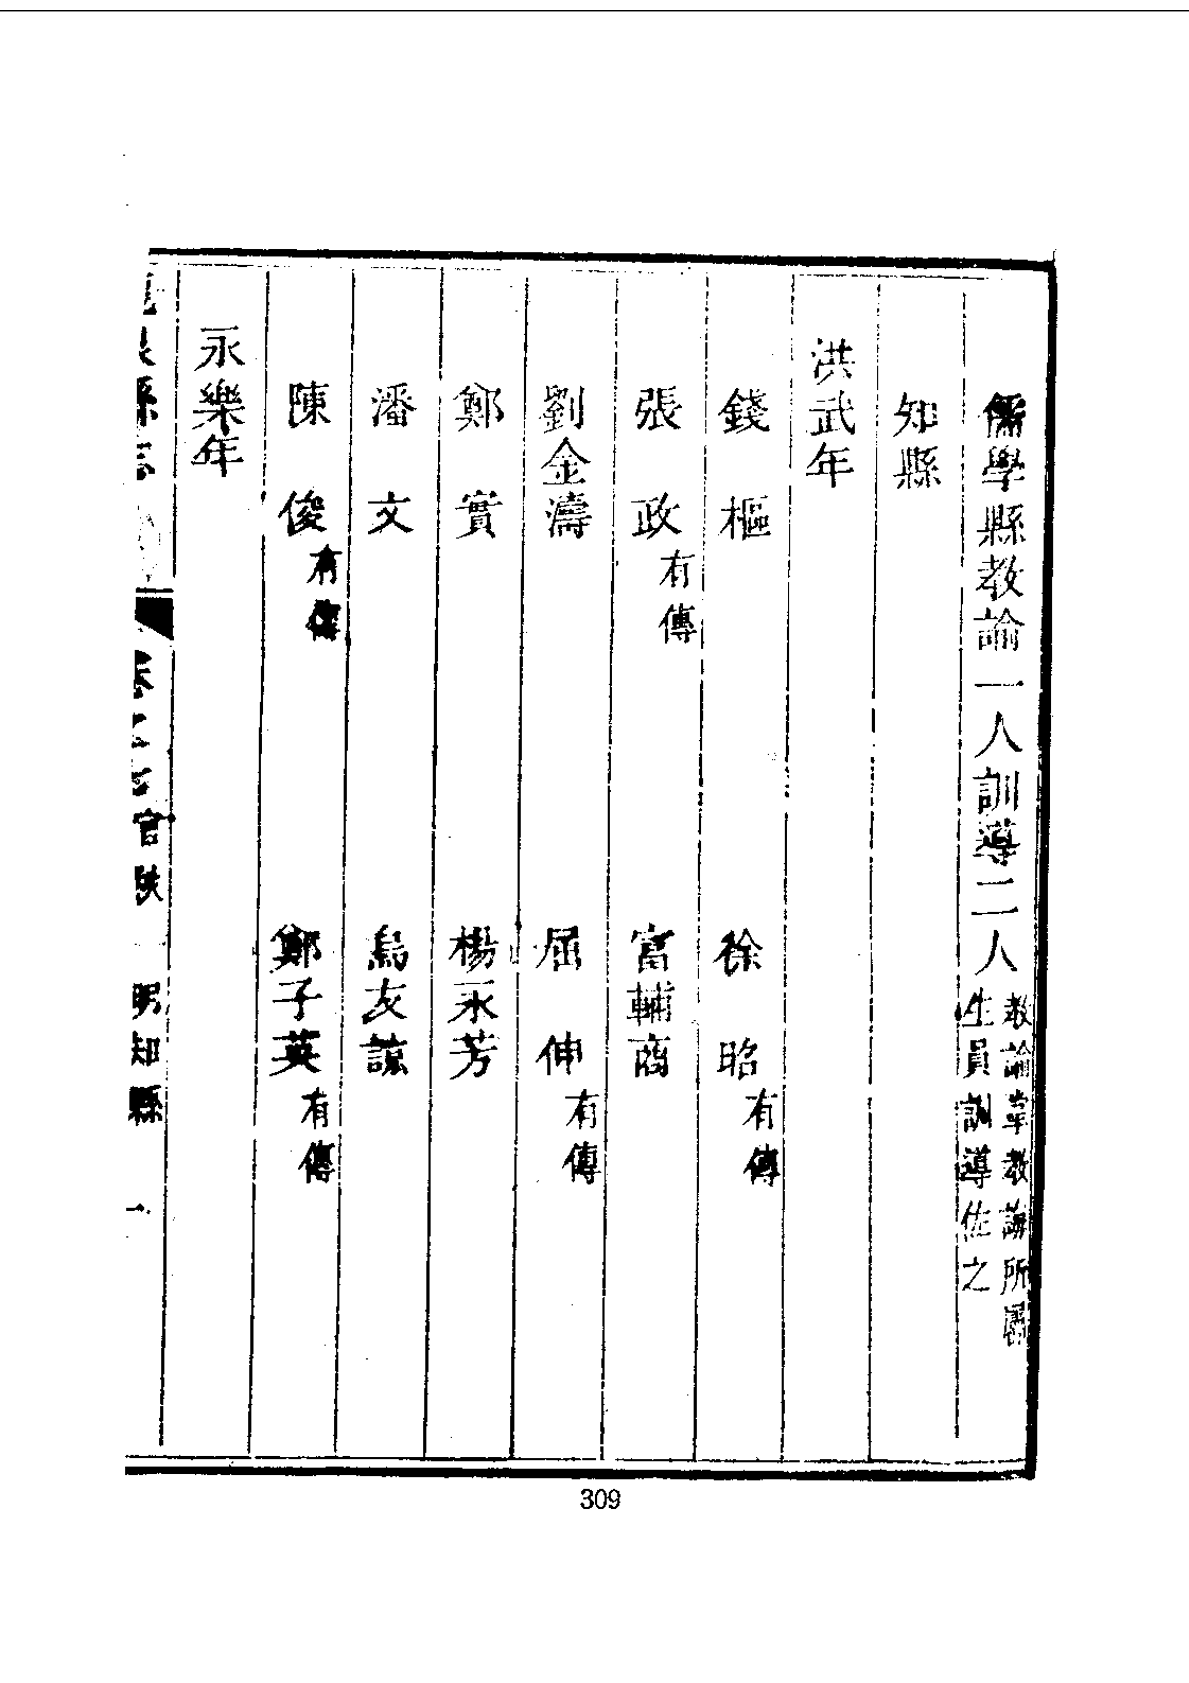 儒學縣教諭一人訓導二人教諭掌教誨所屬生員訓導佐之
知縣
洪武年
錢樞 徐昭有傳
張政有傳 富輔商
劉金濤 屈伸有傳
鄭實 楊永芳
潘文 烏友諒
陳俊有傳 鄭子英有傳
永樂年
縣志 卷之 官 明知縣 一
309